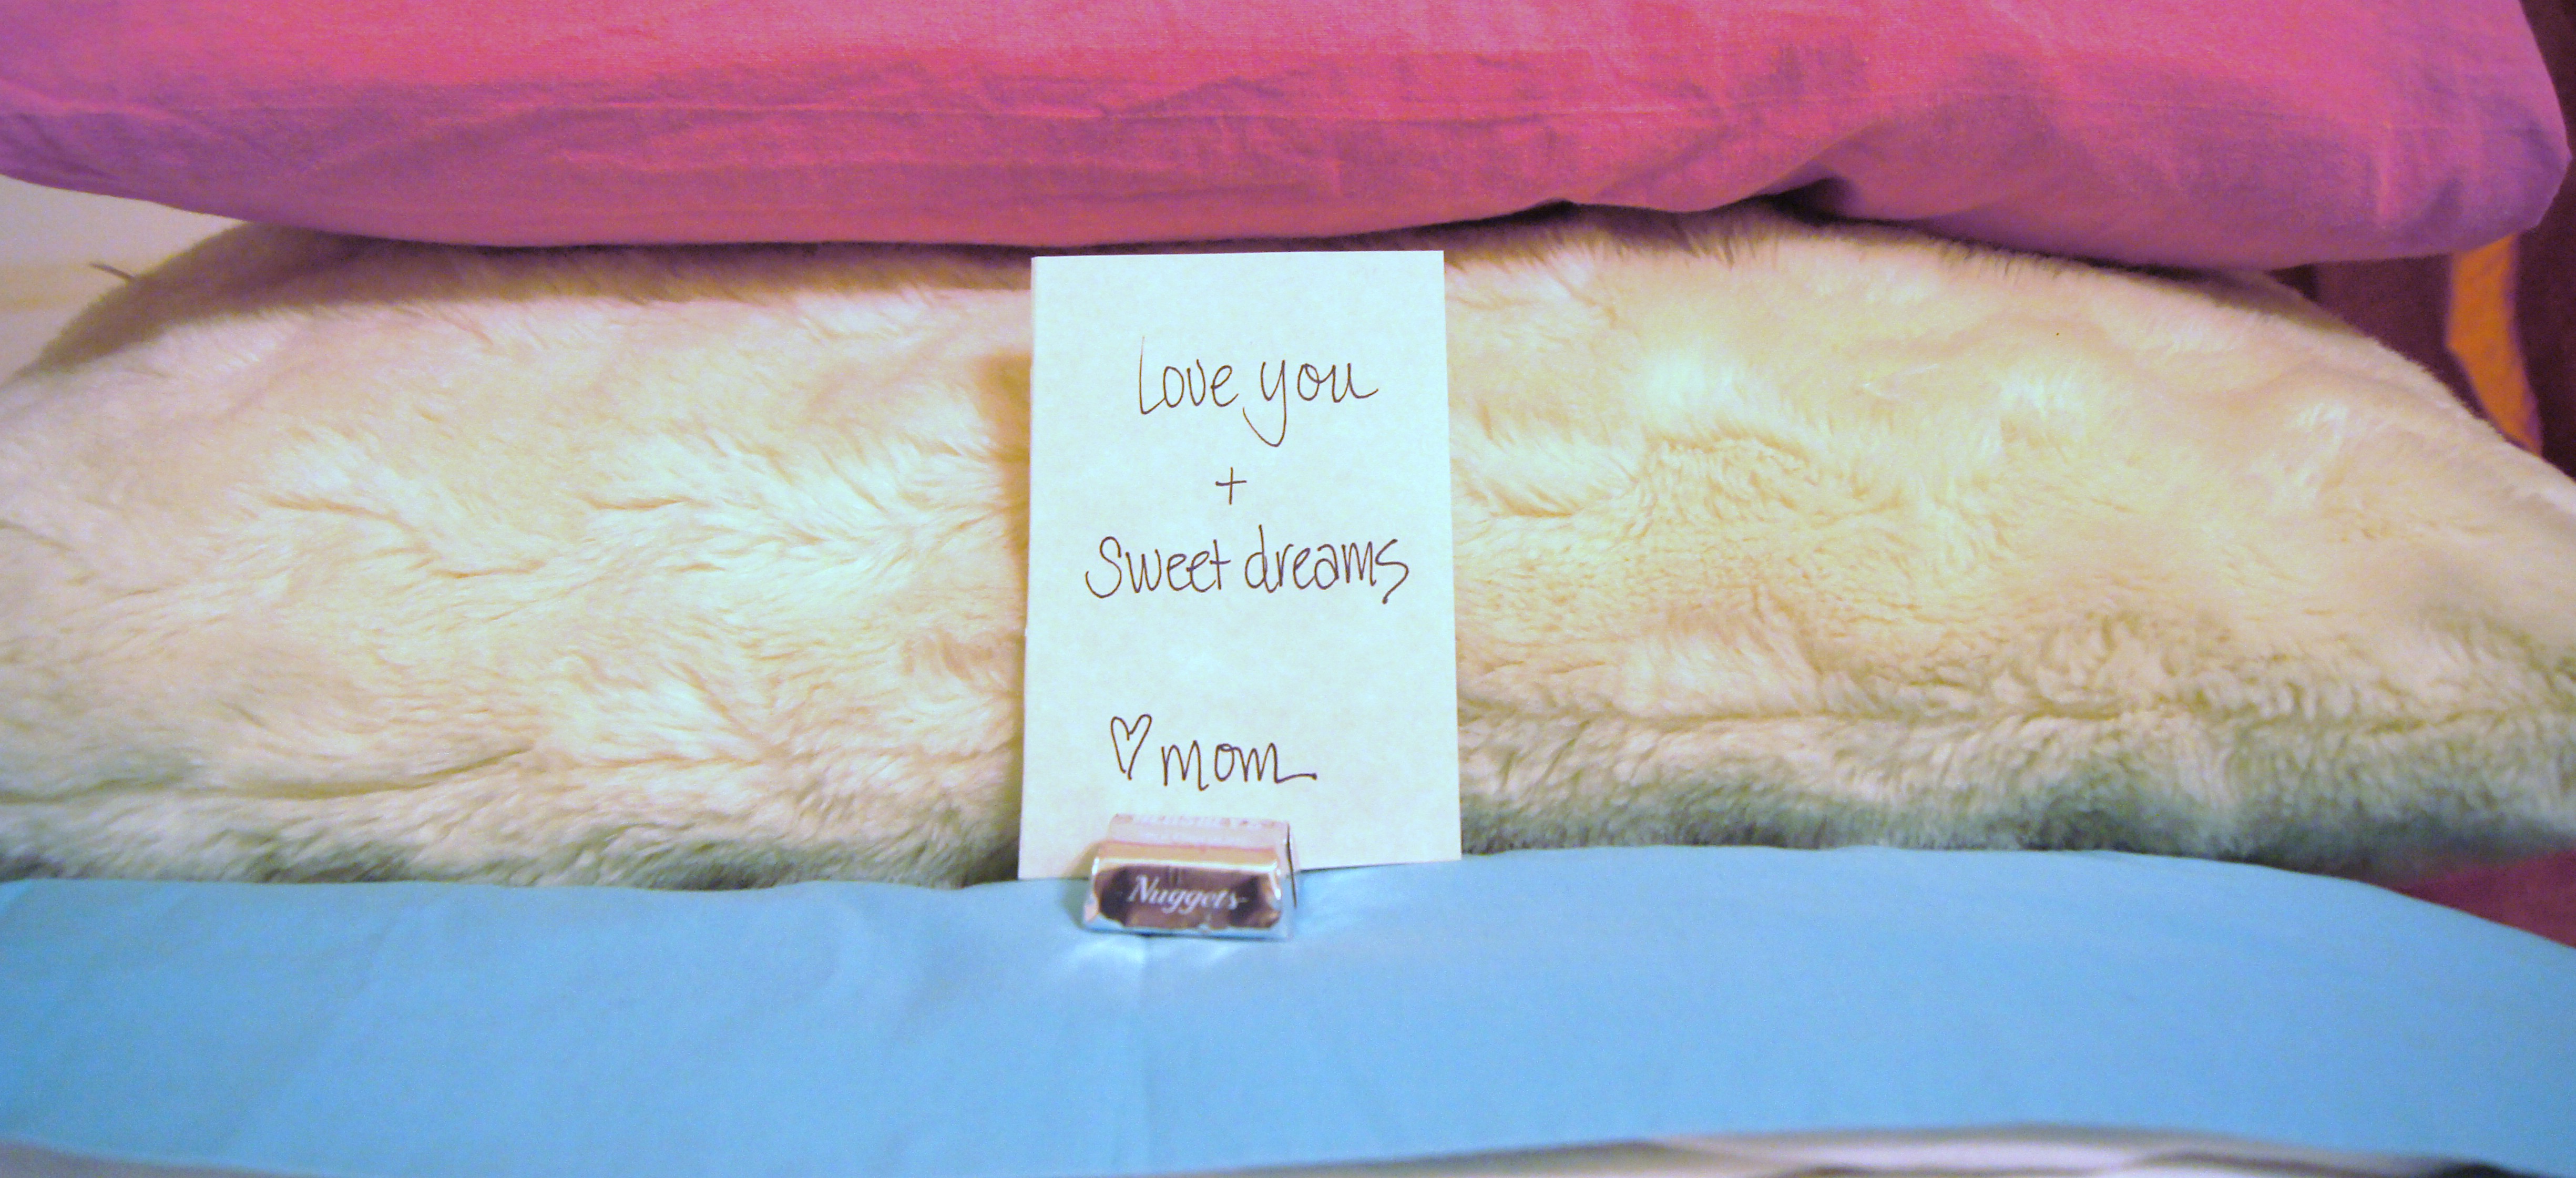 Love you
+
Sweet dreams
♡ mom
Nuggets